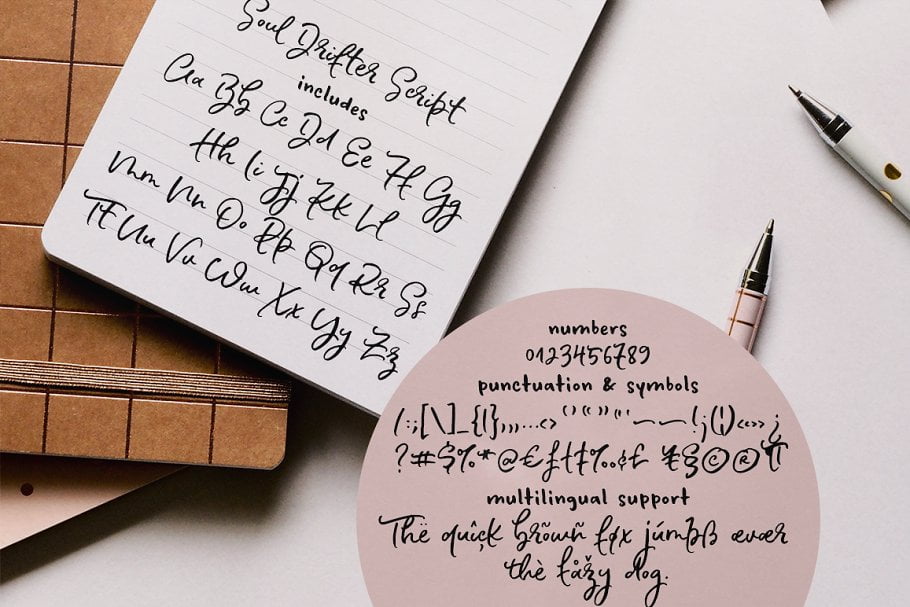 Soul Drifter Script
includes
Aa Bb Cc Dd Ee Ff Gg
Hh Ii Jj Kk Ll
Mm Nn Oo Pp Qq Rr Ss
Tt Uu Vv Ww Xx Yy Zz
numbers
0123456789
punctuation & symbols
/:;[\]_{|},,,...<> ‘’“”"' –—!¡(¦)‹«»›¿
?#$%*@€ƒ†‡‰¢£ ¥§©®¶
multilingual support
Thë quîçk brõwñ føx júmpß ævœr
thè łåžy dog.